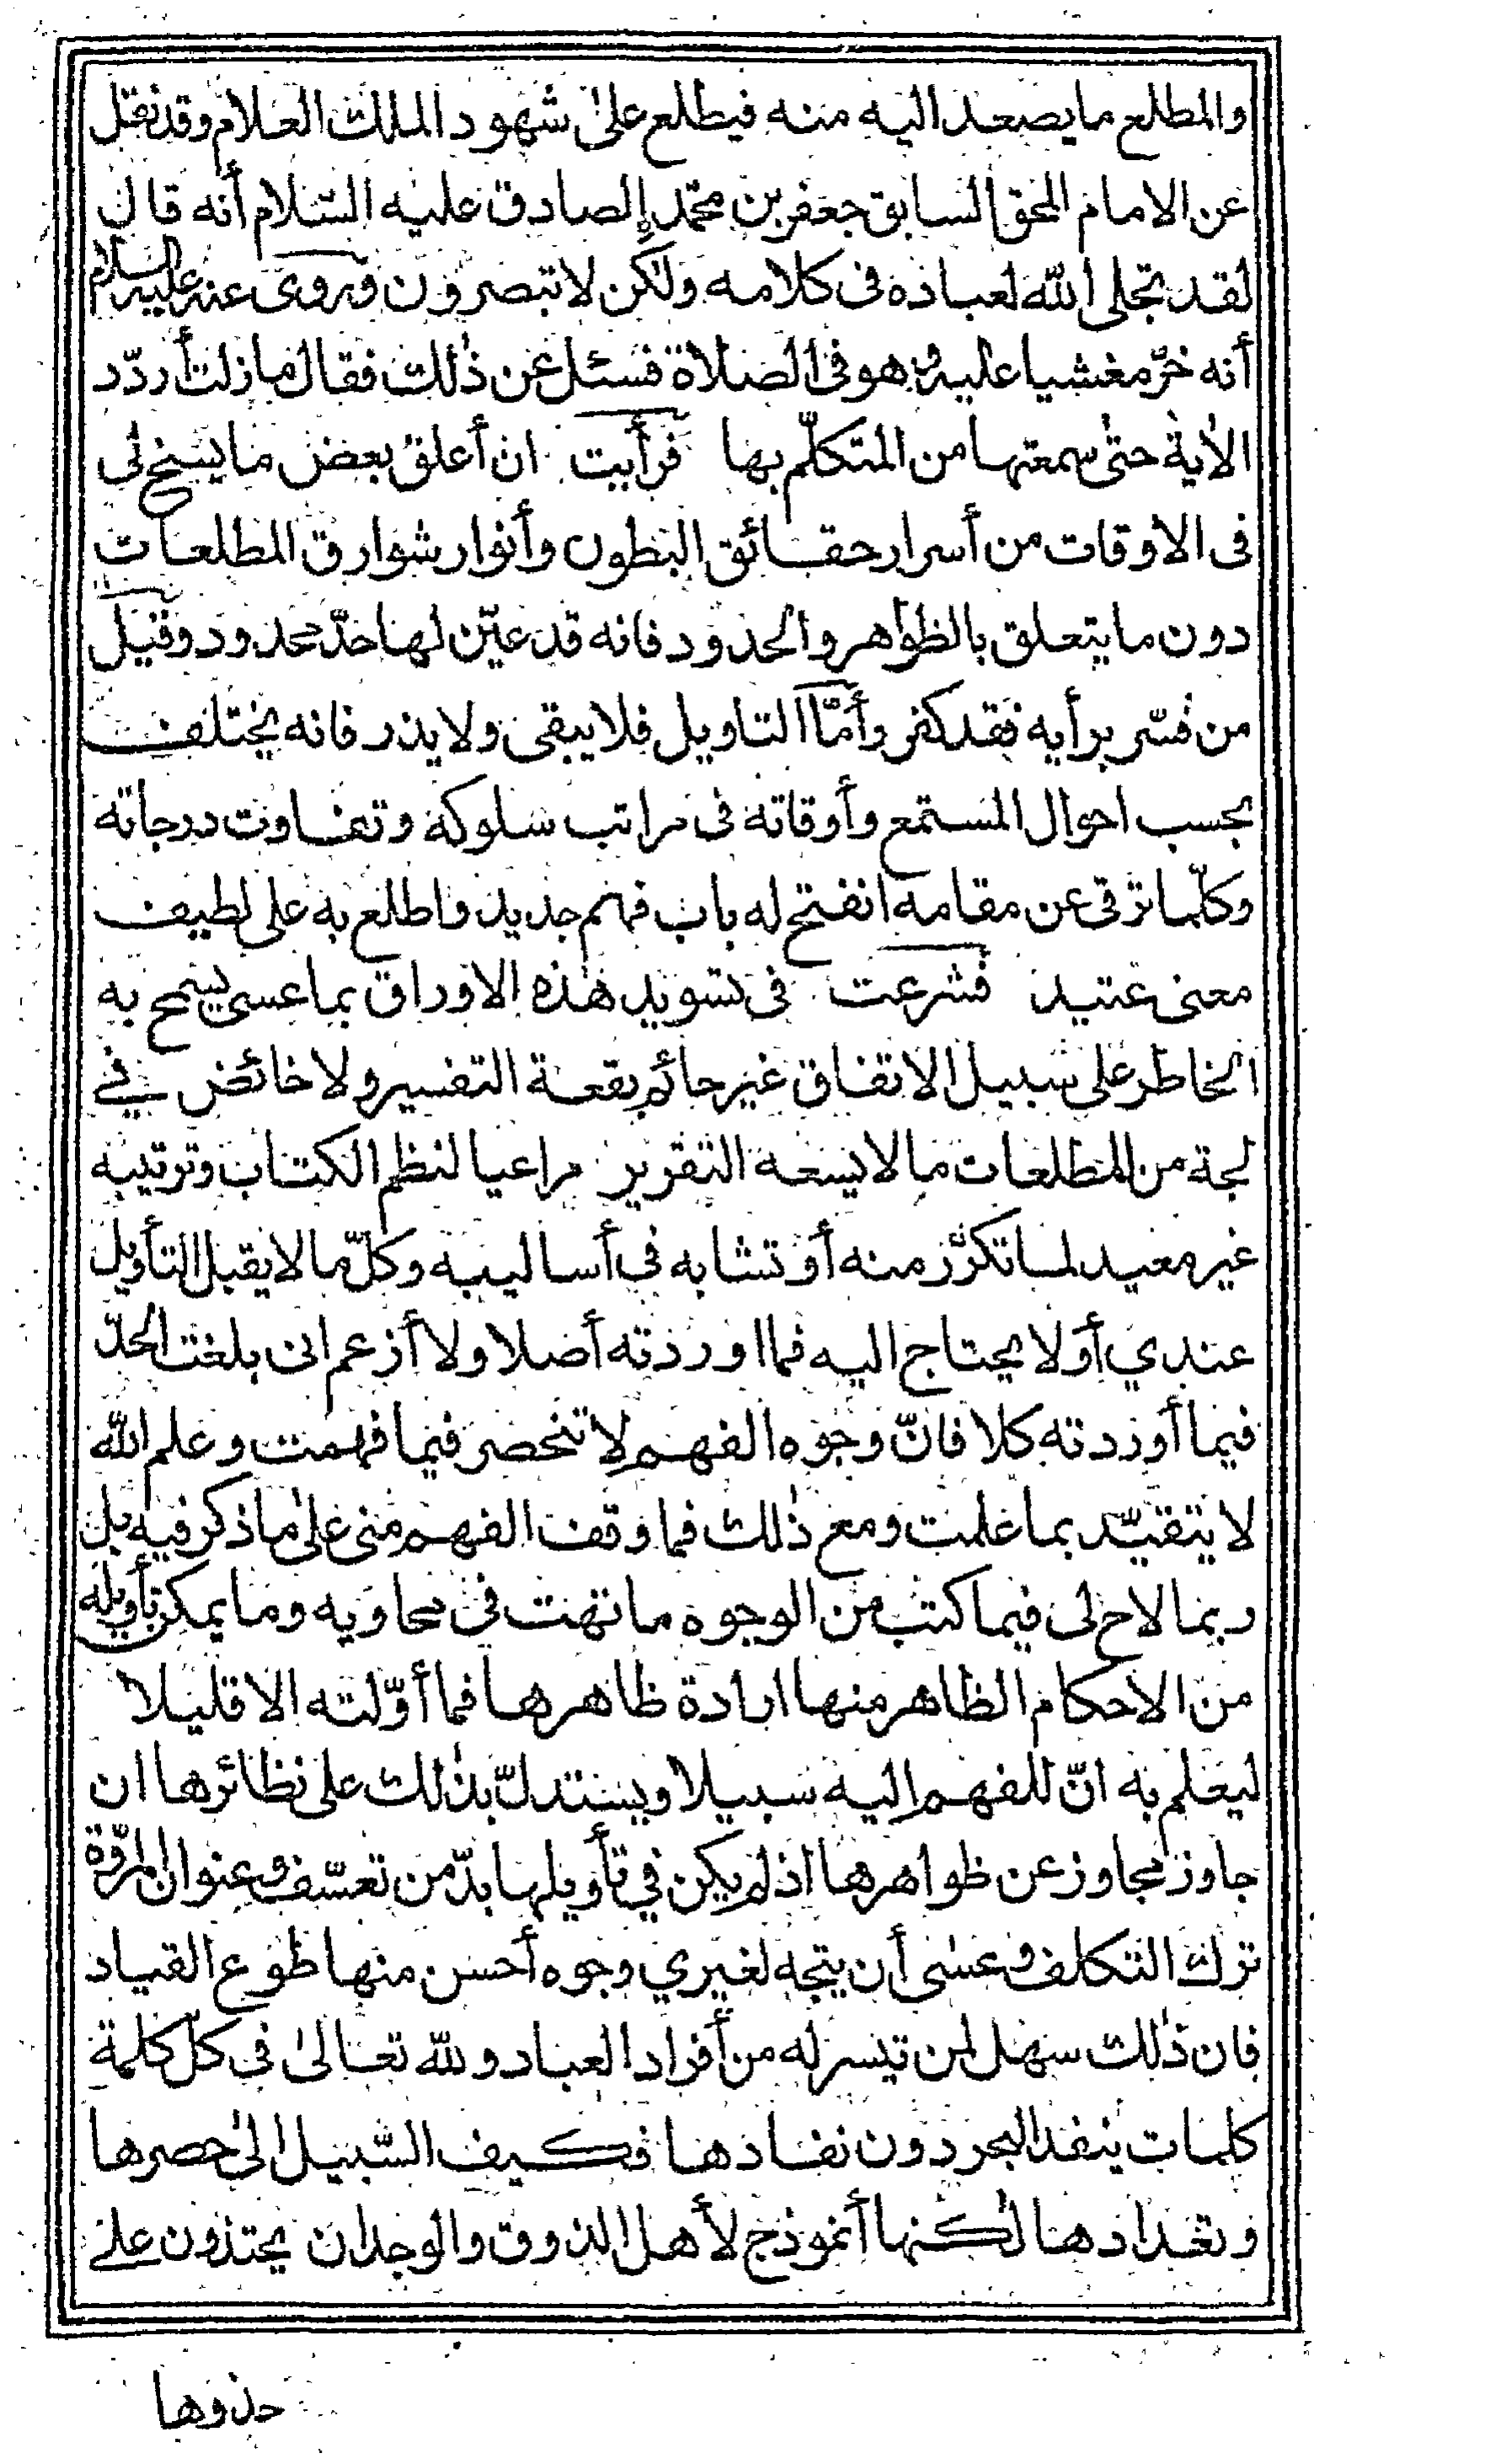 والمطلع ما يصعد اليه منه فيطلع على شهود الملك العلام وقد نقل
عن الامام المحق السابق جعفر بن محمد الصادق عليه السّلام أنه قال
لقد تجلى الله لعباده في كلامه ولكن لا تبصرون وروى عنه عليه السلام
أنه خرّ مغشيا عليه وهو في الصلاة فسئل عن ذلك فقال ما زلت أردّد
الآية حتى سمعتها من المتكلّم بها فرأيت ان أعلق بعض ما يسنح لى
في الاوقات من أسرار حقائق البطون وأنوار شوارق المطلعات
دون ما يتعلق بالظواهر والحدود فانه قد عيّن لها حدّ محدود وقيل
من فسّر برأيه فقد كفر وأمّا التاويل فلا يبقى ولا يذر فانه يختلف
بحسب احوال المستمع وأوقاته في مراتب سلوكه وتفاوت درجاته
وكلّما ترقى عن مقامه انفتح له باب فهم جديد واطلع به على لطيف
معنى عتيد فشرعت في تسويد هذه الاوراق بما عسى يسمح به
الخاطر على سبيل الاتفاق غير حائم بقعة التفسير ولا خائض في
لجة من المطلعات ما لا يسعه التقرير مراعيا لنظم الكتاب وترتيبه
غير معيد لما تكرّر منه أو تشابه في أساليبه وكلّ ما لا يقبل التأويل
عندي أو لا يحتاج اليه فما اوردته أصلا ولا أزعم انى بلغت الحدّ
فيما أوردته كلا فانّ وجوه الفهم لا تنحصر فيما فهمت وعلم الله
لا يتقيّد بما علمت ومع ذلك فما وقف الفهم منى على ما ذكر فيه بل
ربما لاح لى فيما كتب من الوجوه ما تهت في محاويه وما يمكن تأويله
من الاحكام الظاهر منها ارادة ظاهرها فما أوّلته الا قليلا
ليعلم به انّ للفهم اليه سبيلا ويستدلّ بذلك على نظائرها ان
جاوز مجاوز عن ظواهرها اذ لم يكن في تأويلها بدّ من تعسّف وعنوان المروّة
ترك التكلف وعسى أن يتجه لغيري وجوه أحسن منها طوع القياد
فان ذلك سهل لمن تيسر له من أفراد العباد ولله تعالى في كلّ كلمة
كلمات ينفد البحر دون نفادها فكيف السّبيل الى حصرها
وتعدادها لكنها أنموذج لأهل الذوق والوجدان يحتذون على
حذوها